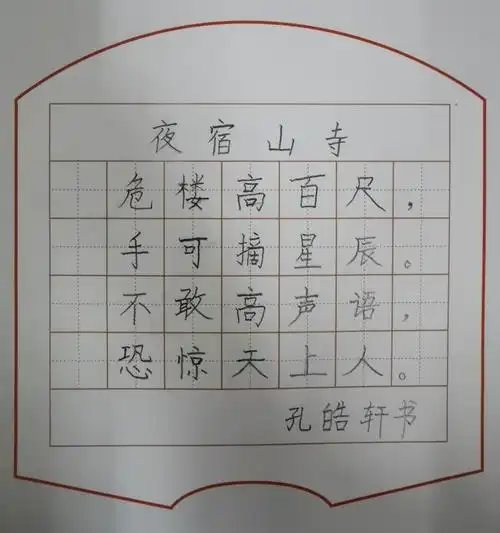 夜宿山寺
危楼高百尺，
手可摘星辰。
不敢高声语，
恐惊天上人。
孔皓轩书